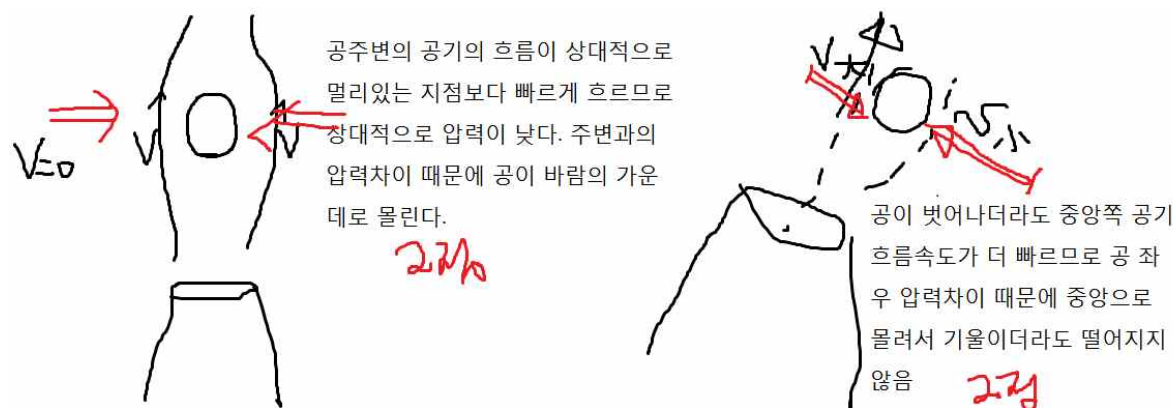 공주변의 공기의 흐름이 상대적으로
멀리있는 지점보다 빠르게 흐르므로
상대적으로 압력이 낮다. 주변과의
압력차이 때문에 공이 바람의 가운
데로 몰린다.
2점
V=0
V
V
V大
v小
공이 벗어나더라도 중앙쪽 공기
흐름속도가 더 빠르므로 공 좌
우 압력차이 때문에 중앙으로
몰려서 기울이더라도 떨어지지
않음
2점